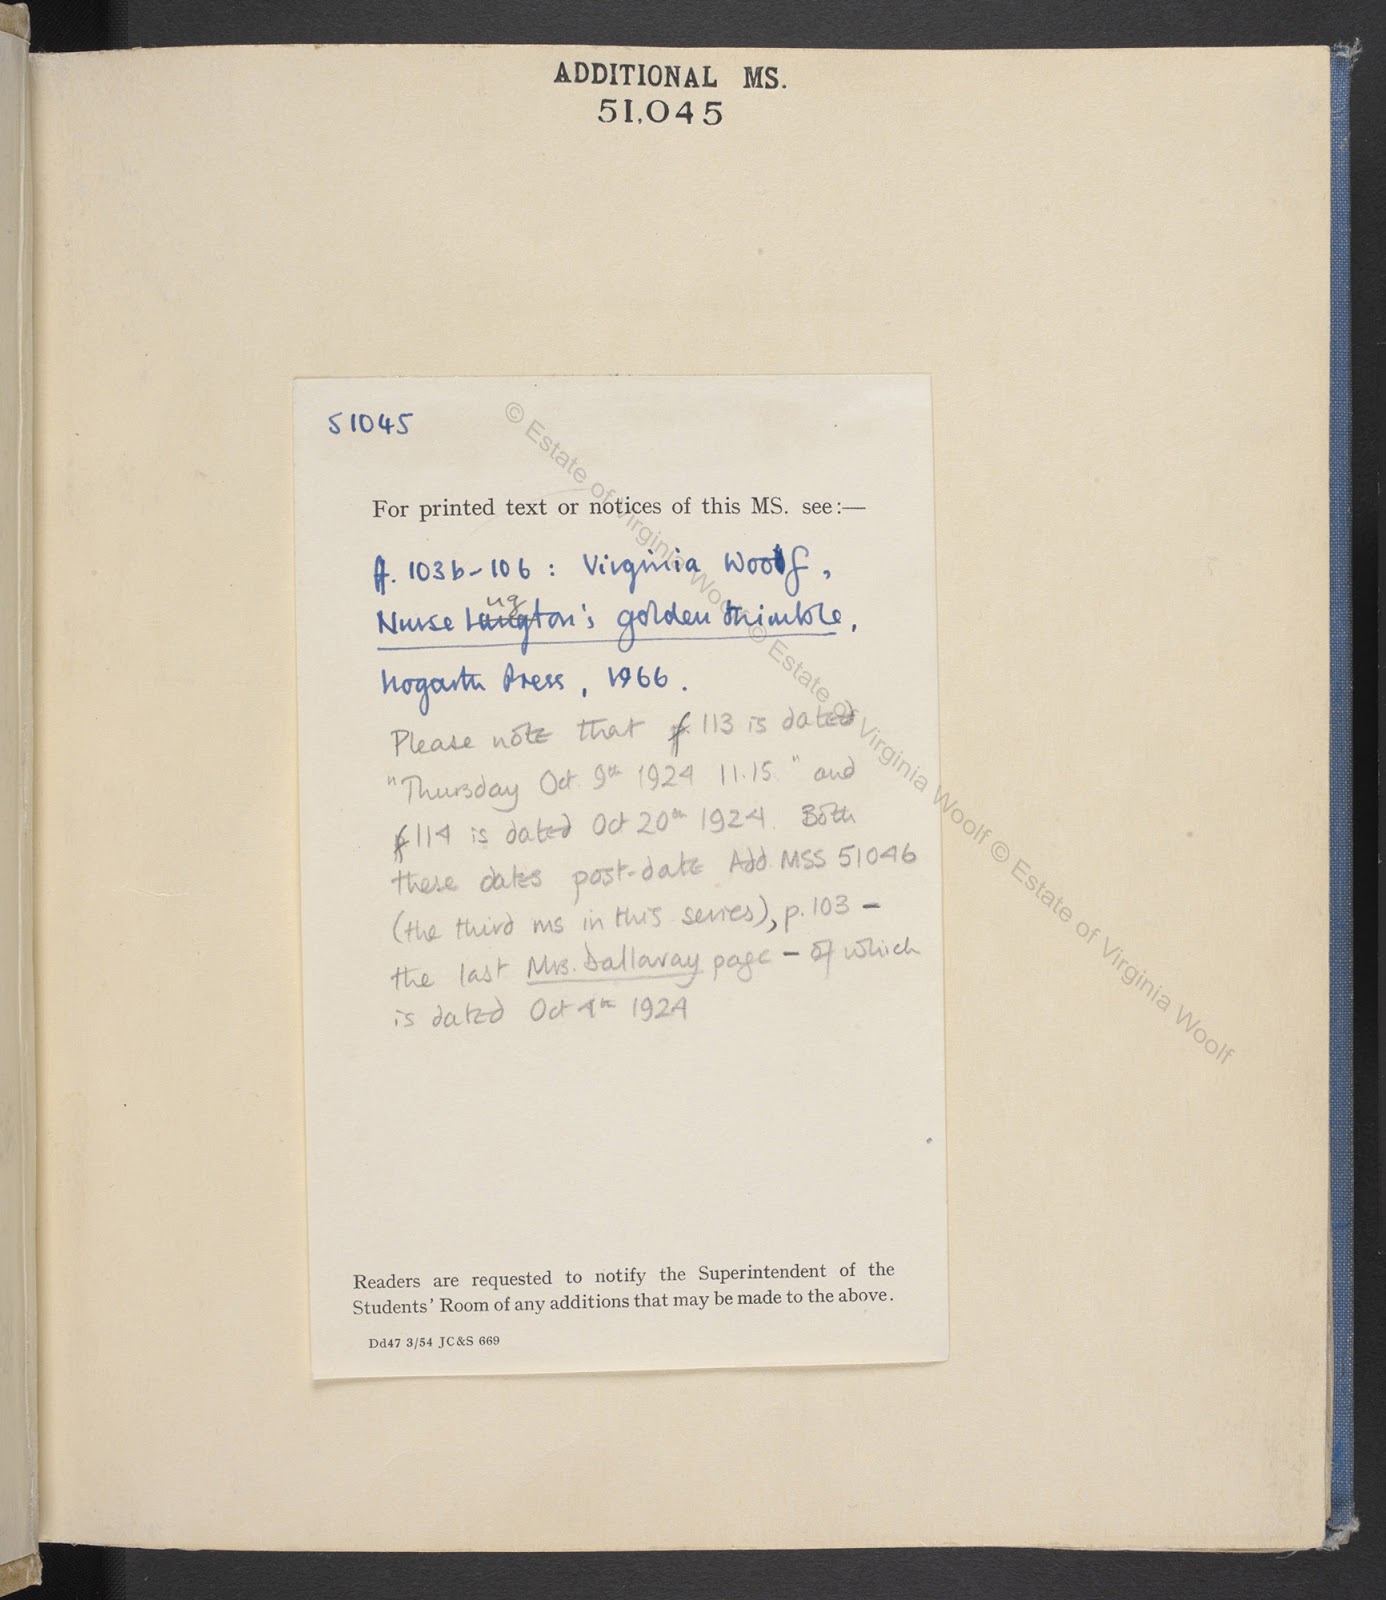 ADDITIONAL MS.
51,045
51045
For printed text or notices of this MS. see:—
ff. 103b-106: Virginia Woolf,
ug
Nurse Langton's golden thimble,
Hogarth Press, 1966.
Please note that f. 113 is dated
"Thursday Oct. 9th 1924 11.15" and
f114 is dated Oct 20th 1924. Both
these dates post-date Add MSS 51046
(the third ms in this series), p. 103 -
the last Mrs. Dalloway page - of which
is dated Oct 4th 1924
Readers are requested to notify the Superintendent of the
Students' Room of any additions that may be made to the above.
Dd47 3/54 JC&S 669
© Estate of Virginia Woolf © Estate of Virginia Woolf © Estate of Virginia Woolf